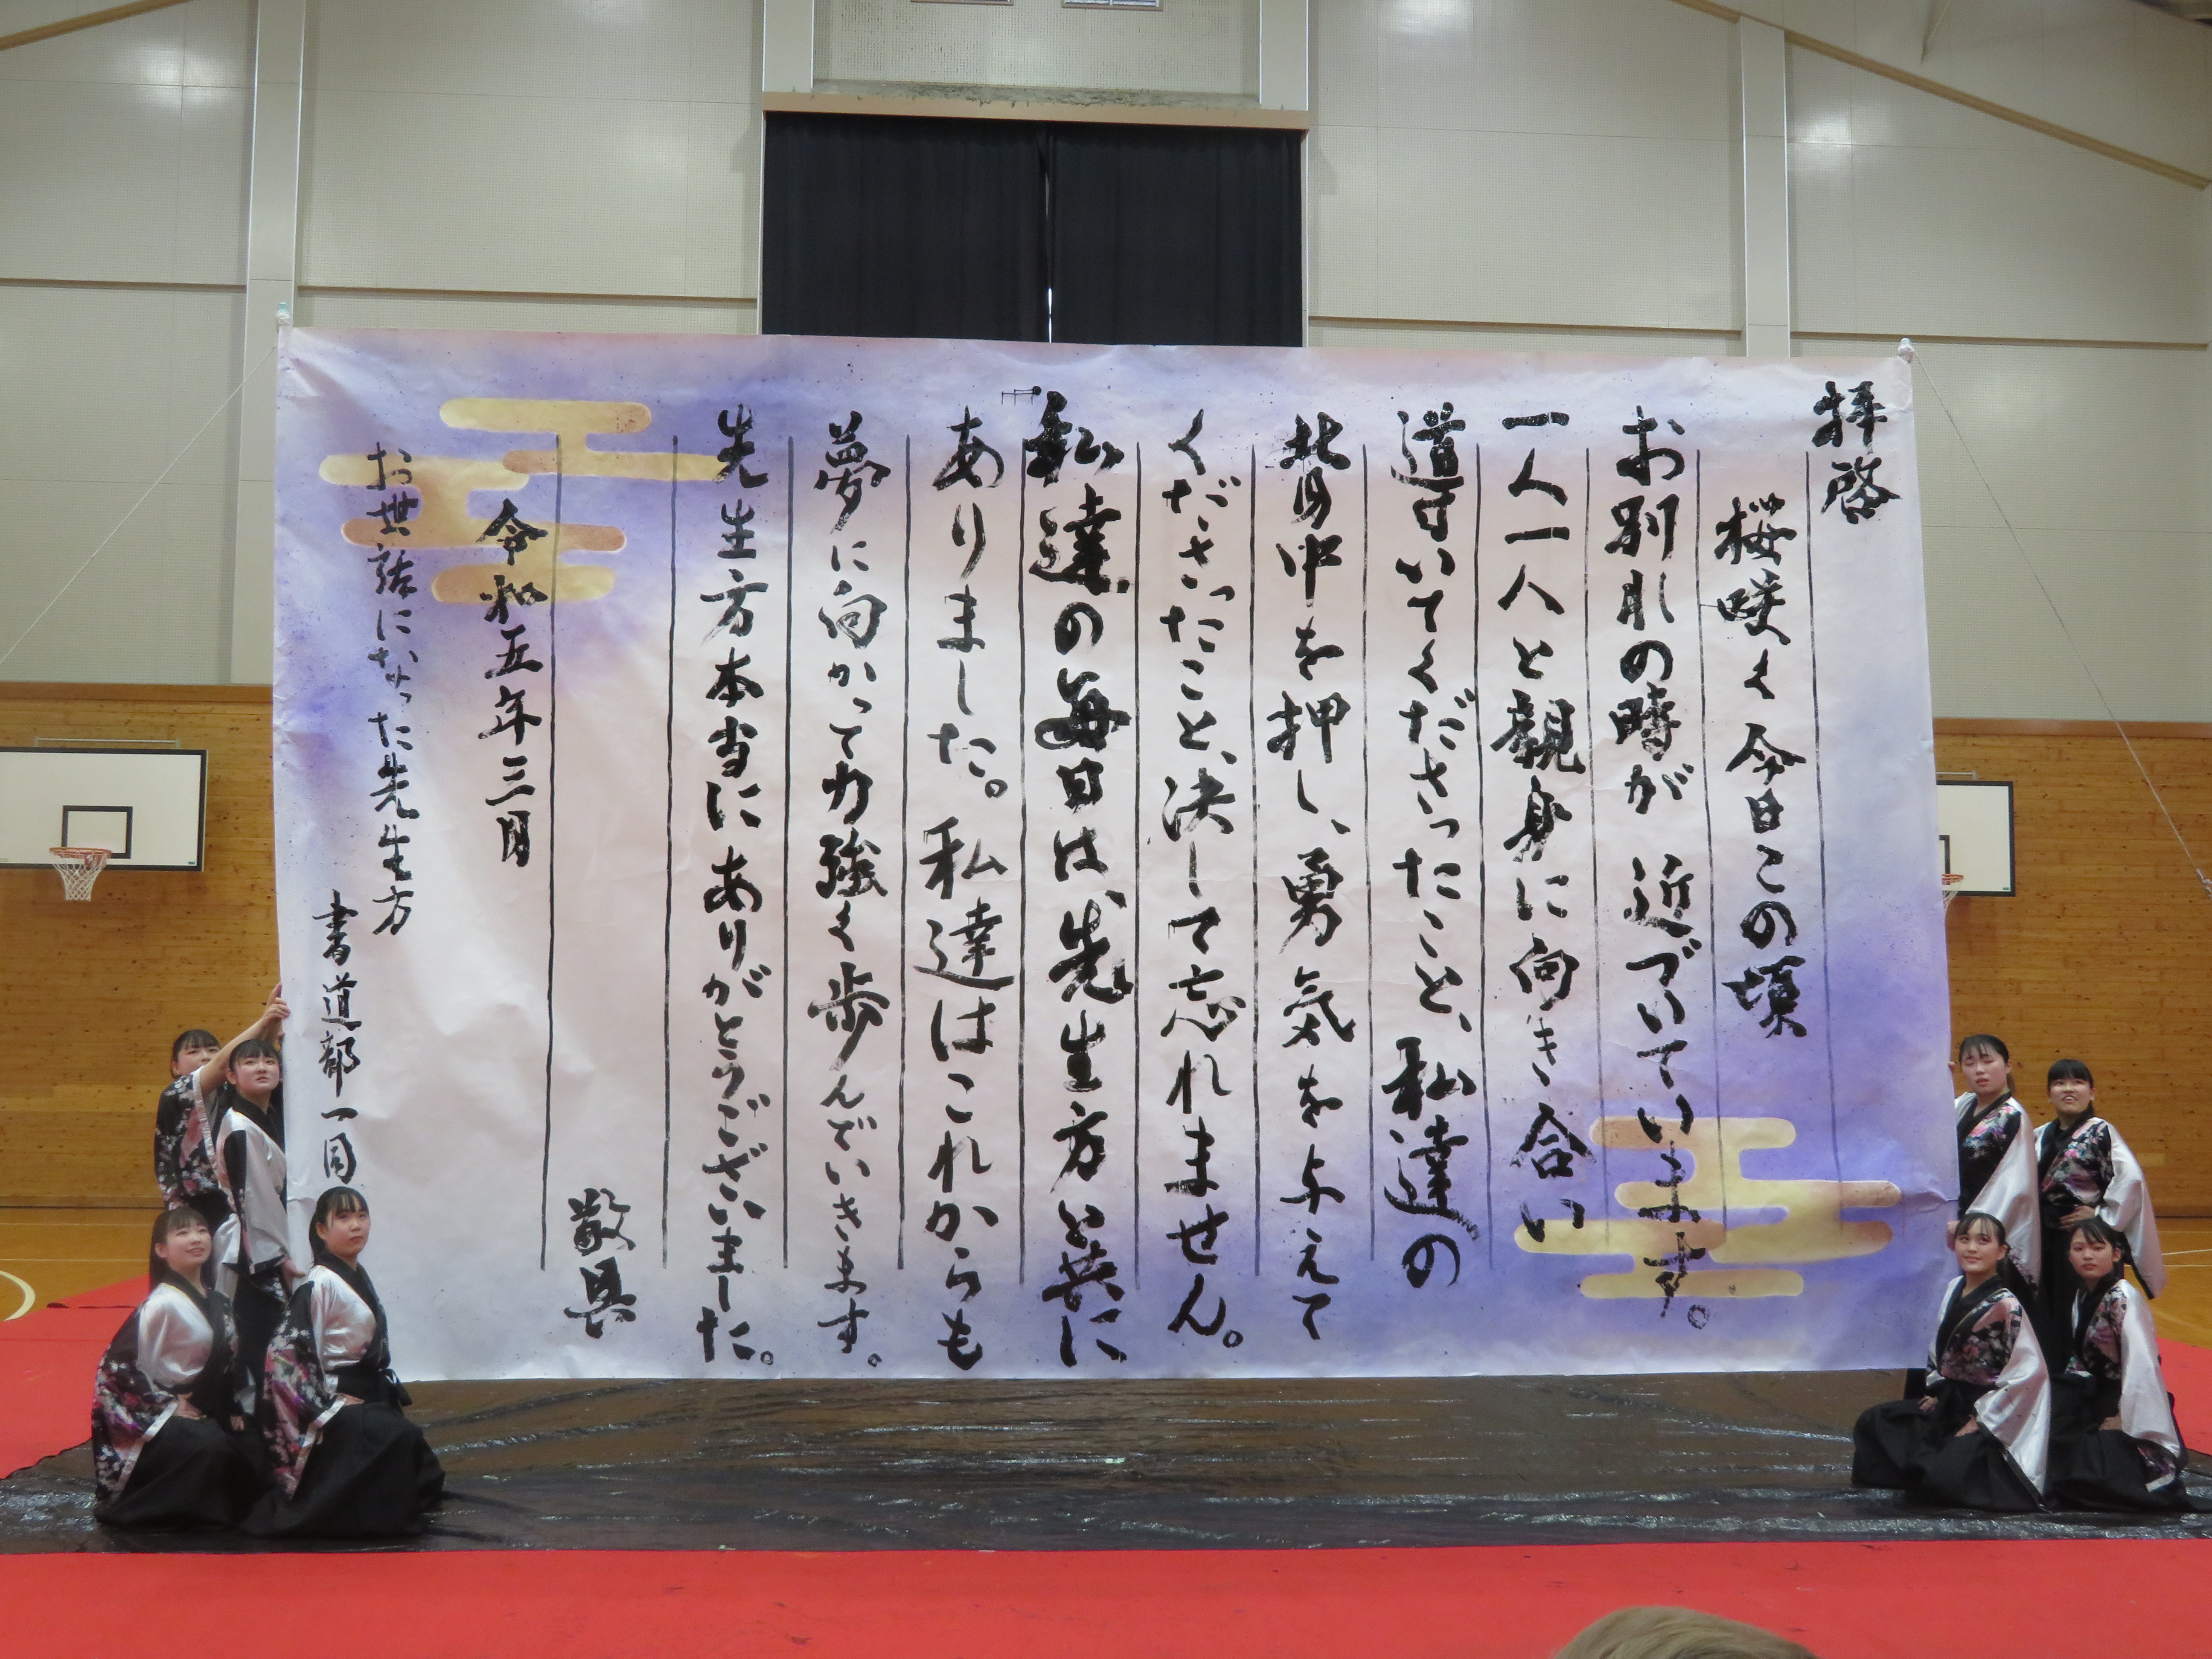 拝啓
桜咲く今日この頃
お別れの時が近づいています。
一人一人と親身に向き合い
導いてくださったこと、私達の
背中を押し、勇気を与えて
くださったこと、決して忘れません。
私達の毎日は、先生方と共に
ありました。私達はこれからも
夢に向かって力強く歩んでいきます。
先生方本当にありがとうございました。
敬具
令和五年三月
お世話になった先生方
書道部一同